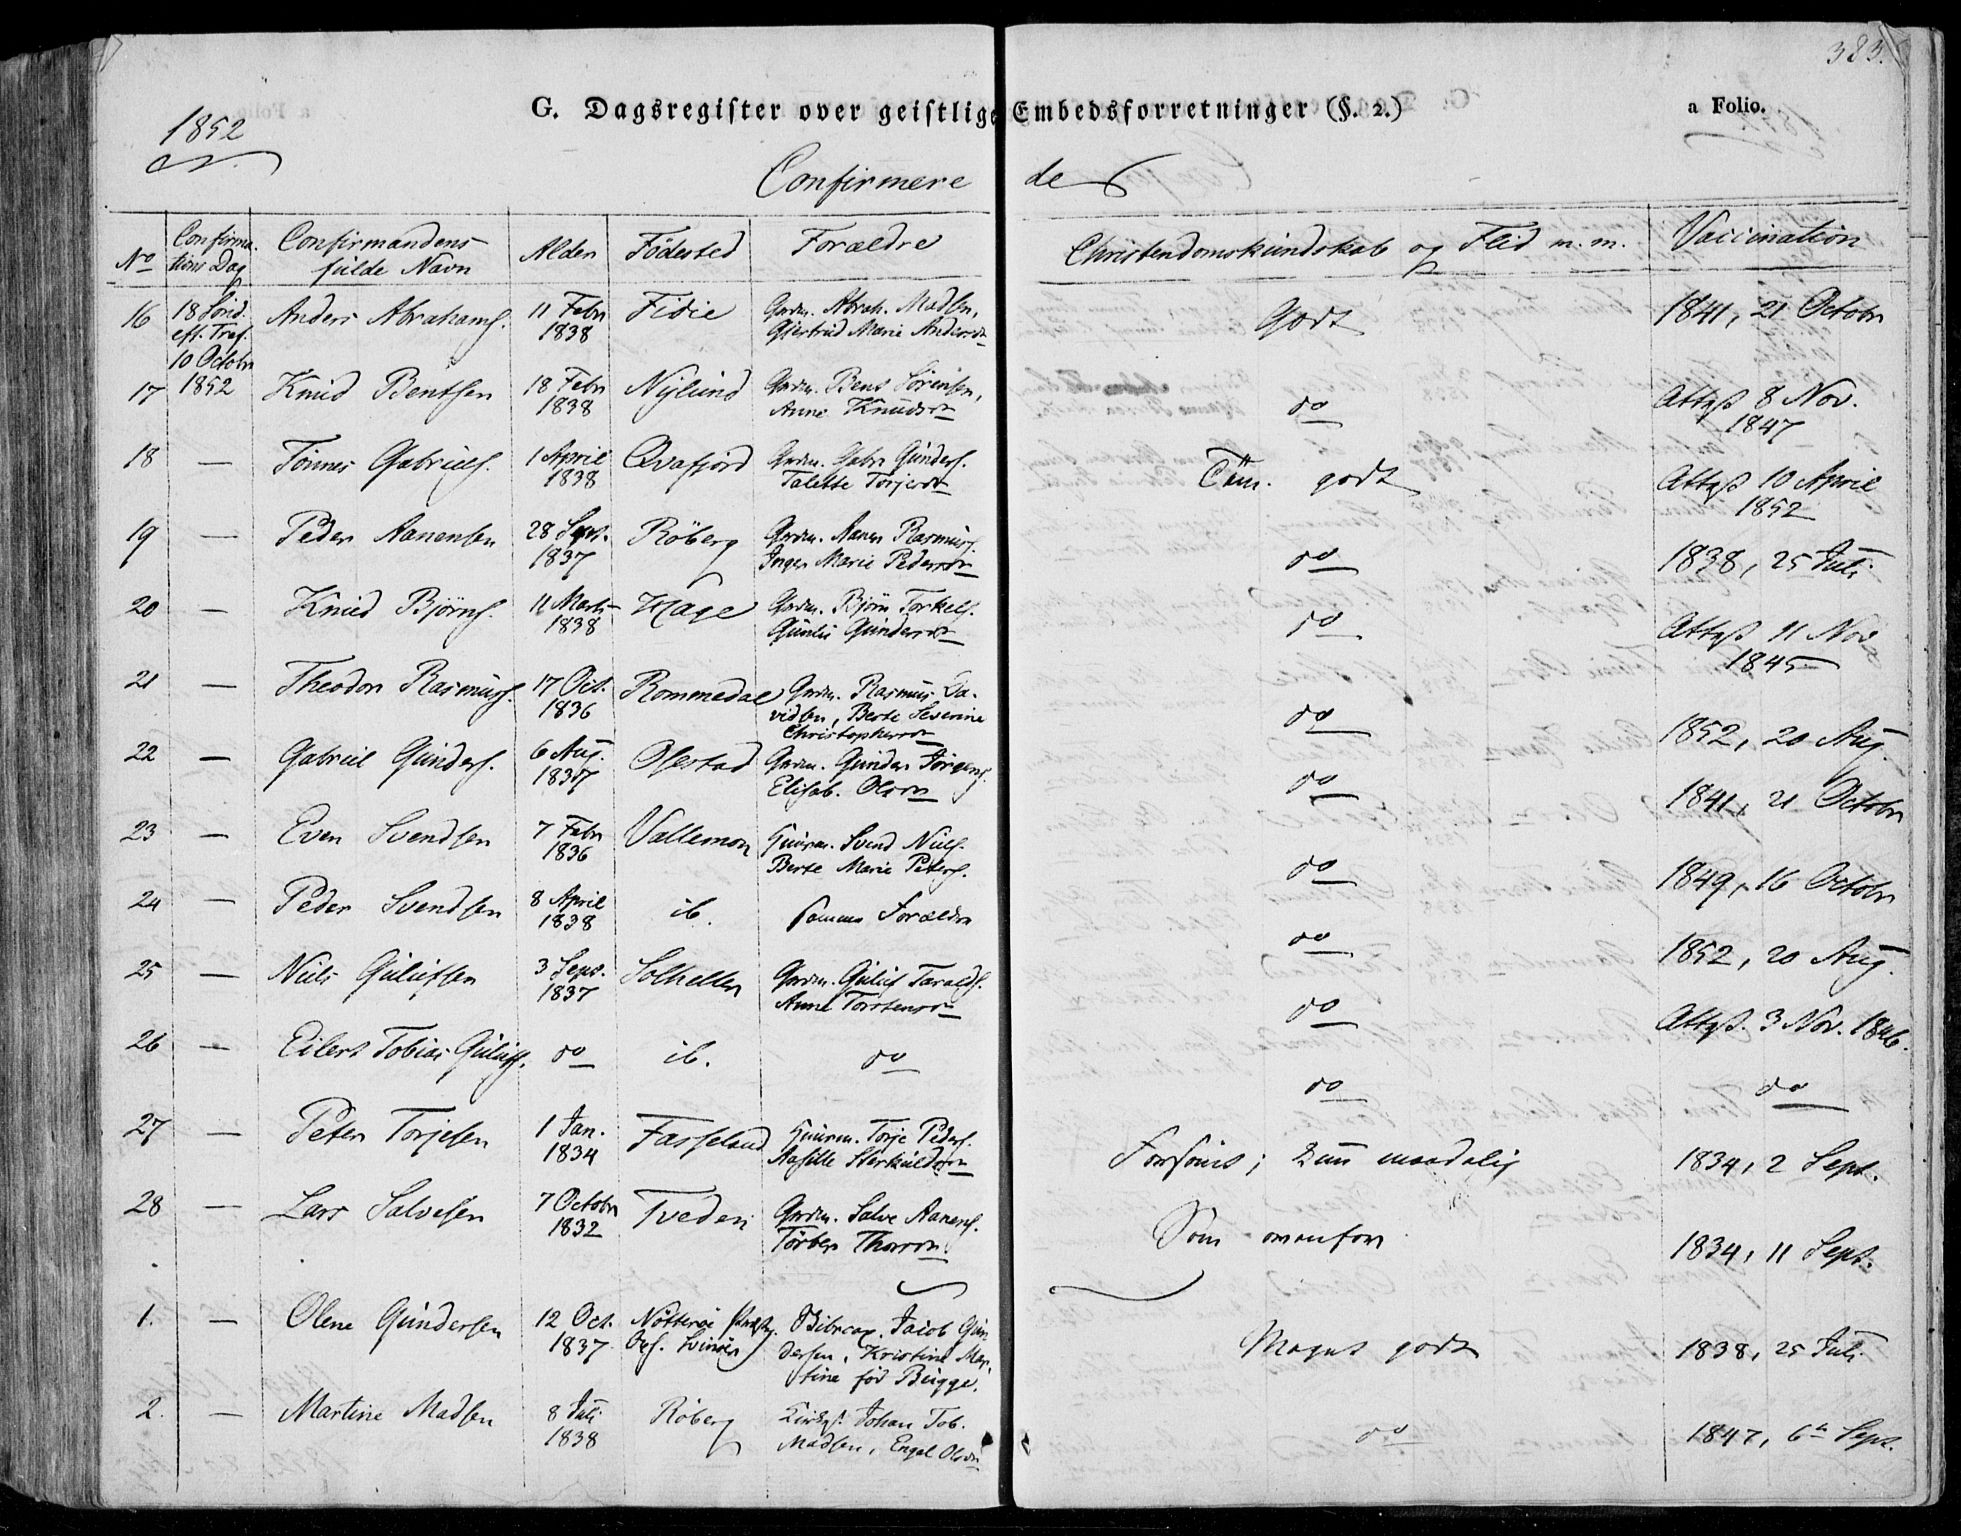 383.
G. Dagsregister over geistlige Embedsforretninger (§. 2.)
a Folio.
1852
Confirmerede
No
Confirmations Dag
Confirmandens fulde Navn
Alder
Födested
Forældre
Christendomskundskab og Flid m. m.
Vaccination
16 18 Sönd. eft. Tref. 10 Octobr 1852 Anders Abrahams. 11 Febr 1838 Fidie Grdm. Abrah. Madsen, Gjertrud Marie Andersdr Godt 1841, 21 Octobr
17 Knud Bentsen 18 Febr 1838 Nylund Grdm. Bent Sörensen, Anne Knudsdr do Attest 8 Nov. 1847
18 — Tönnes Gabriels. 1 April 1838 Qvafjord Grdm. Gabr Gunders. Talette Torjersdr Tem. godt Attest 10 April 1852
19 — Peder Aanensen 28 Sept. 1837 Röberg Grdm. Aanen Rasmus. Inger Marie Pedersdr do 1838, 25 Juli
20 — Knud Björns. 11 Marts 1838 Hage Grdm. Björn Torkels. Gundersdr do Attest 11 Nov 1845
21 — Theodor Rasmus. 17 Oct. 1836 Rommedal Grdm. Rasmus Davidsen, Berte Severine Christophersdr do 1852, 20 Aug.
22 — Gabriel Gunders. 6 Aug. 1837 Ofestad Grdm. Gunder Jörgens. Elisab. Olsdr do 1841, 21 Octobr
23 — Even Svendsen 7 Febr 1836 Vallemon Huusm. Svend Niels. Berte Marie Peters. do 1849, 16 Octobr
24 — Peder Svendsen 8 April 1838 ib. samme Forældre do 1852, 20 Aug.
25 — Niels Gulufsen 3 Sept. 1837 Solhellen Grdm. Guluf Taralds. Anne Torstensdr do Attest. 3 Nov. 1846.
26 — Eilert Tobias Gulufs. do ib. do do do
27 — Peter Torjesen 1 Jan. 1834 Fasseland Huusm. Torje Peders. Aasille Sterkuldsdr Forsömt; kun maadelig 1834, 2 Sept.
28 — Lars Salvesen 7 Octobr 1832 Tveden Grdm. Salve Aanens. Torber Thorsdr. Som ovenfor 1834, 11 Sept.
1. — Olene Gundersen 12 Oct. 1837 Nötteröe Præstg. Jacob Gundersen, Kristine Martine föd Bugge. Meget godt 1838, 25 Juli
2. — Martine Madsen 8 Juli 1838 Röberg Kirkes. Johan Tob. Madsen, Engel Olsdr do 1847, 6te Sept.